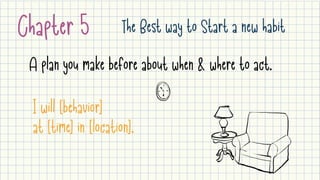 Chapter 5 The Best way to Start a new habit
A plan you make before about when & where to act.
I will [behavior]
at [time] in [location].